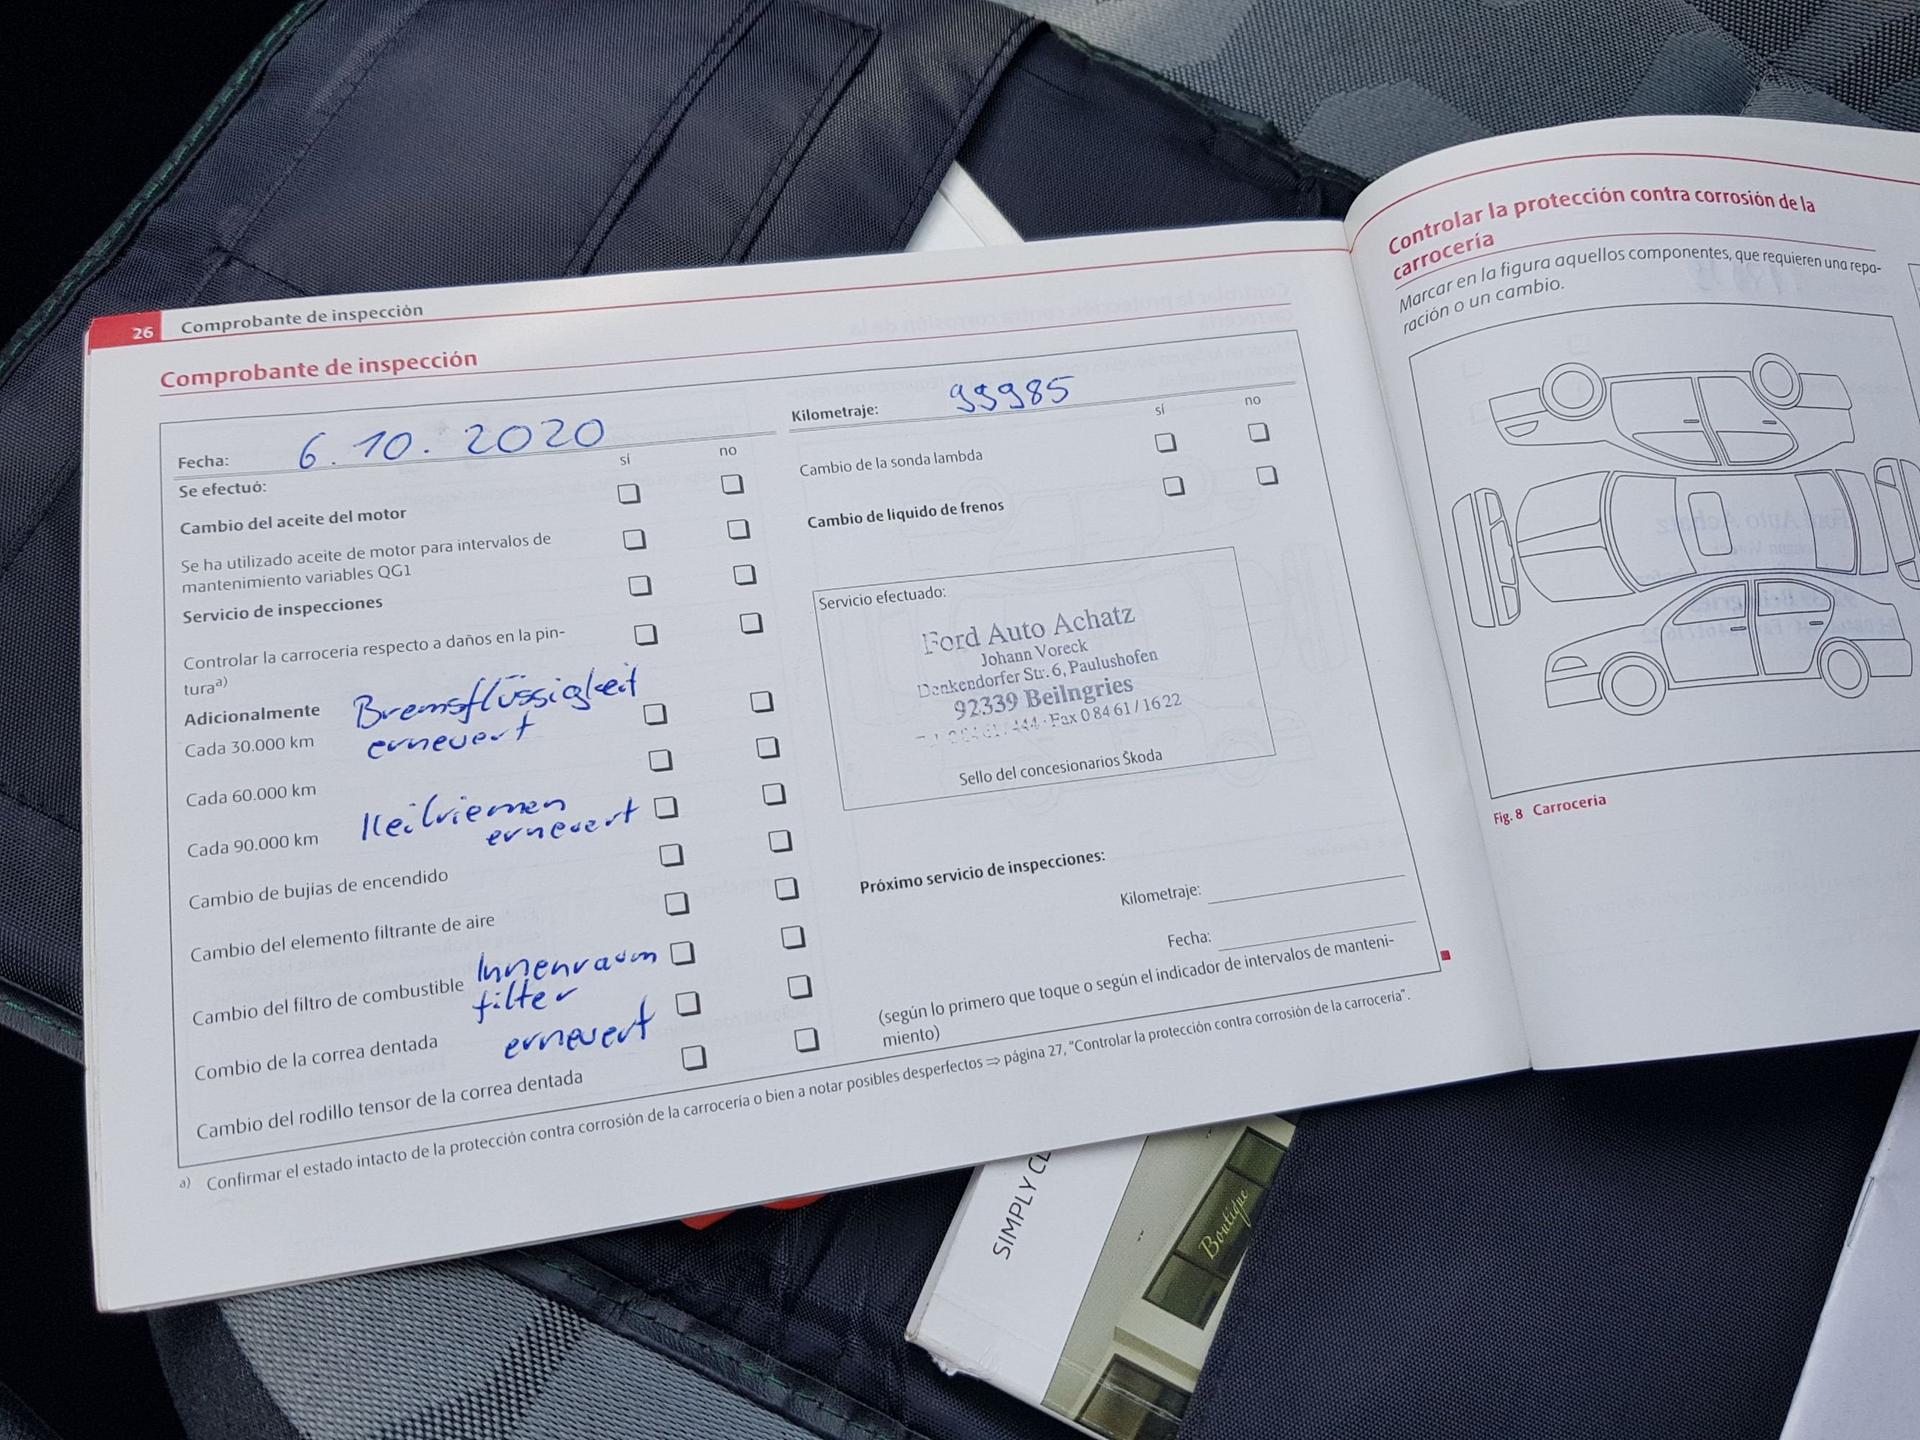 26 Comprobante de inspección
Comprobante de inspección
Fecha: 6. 10. 2020
sí no
Se efectuó:
Cambio del aceite del motor
Se ha utilizado aceite de motor para intervalos de
mantenimiento variables QG1
Servicio de inspecciones
Controlar la carroceria respecto a daños en la pin-
tura a)
Adicionalmente Bremsflüssigkeit
Cada 30.000 km erneuert
Cada 60.000 km
Cada 90.000 km Keilriemen
erneuert
Cambio de bujias de encendido
Cambio del elemento filtrante de aire
Cambio del filtro de combustible Innenraum
filter
Combio de la correa dentada erneuert
Cambio del rodillo tensor de la correa dentada
Kilometraje: 99985
sí no
Cambio de la sonda lambda
Cambio de liquido de frenos
Servicio efectuado:
Ford Auto Achatz
Johann Voreck
Denkendorfer Str. 6, Paulushofen
92339 Beilngries
Fax 0 84 61 / 16 22
Sello del concesionarios Škoda
Próximo servicio de inspecciones:
Kilometraje:
Fecha:
(según lo primero que toque o según el indicador de intervalos de manteni-
miento)
a) Confirmar el estado intacto de la protección contra corrosión de la carrocería o bien a notar posibles desperfectos ⇒ página 27, "Controlar la protección contra corrosión de la carrocería".
Controlar la protección contra corrosión de la
carrocería
Marcar en la figura aquellos componentes, que requieren una repa-
ración o un cambio.
Fig. 8 Carroceria
SIMPLY CL
Boutique